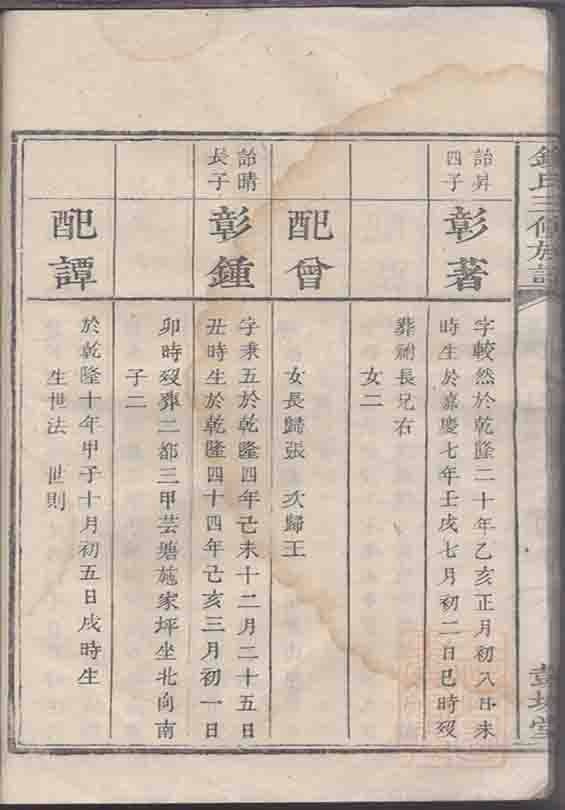 氏三修族譜
彭城堂
詒昇
四子
彰著
字較然於乾隆二十年乙亥正月初八日未
時生於嘉慶七年壬戌七月初二日巳時歿
葬祔長兄右
女二
配曾
女長歸張 次歸王
詒晴
長子
彰鍾
字秉五於乾隆四年己未十二月二十五日
丑時生於乾隆四十四年己亥三月初一日
卯時歿葬二都三甲芸塘施家坪坐北向南
子二
配譚
於乾隆十年甲子十月初五日戌時生
生世法 世則